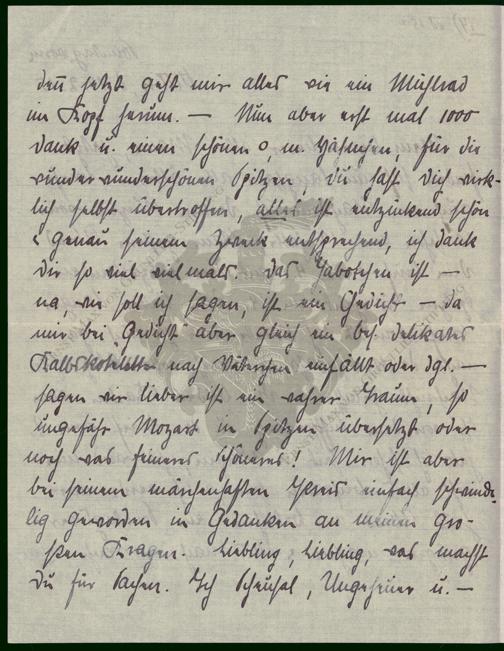 denn jetzt geht mir alles wie ein Mühlrad
im Kopf herum. — Nun aber erst mal 1000
Dank u. einen schönen o, m. , für die
wunder wunderschönen Spitzen, du hast dich wirk-
lich selbst übertroffen, alles ist entzückend schön
& genau seinem Zweck entsprechend, ich dank
dir so viel vielmals. Das Jabotchen ist —
na, wie soll ich sagen, ist ein Gedicht — da
mir bei „Gedicht" aber gleich ein bes. delikates
Kalbskotelette nach Väterchen einfällt oder dgl. —
sagen wir lieber ist ein wahrer Traum, so
ungefähr Mozart in Spitzen übersetzt oder
noch was feineres, schöneres! Mir ist aber
bei seinem märchenhaften Preis einfach schwinde-
lig geworden in Gedanken an meinen gro-
ßen Kragen. Liebling, Liebling, was machst
Du für Sachen. Ich Scheusal, Ungeheuer u. —